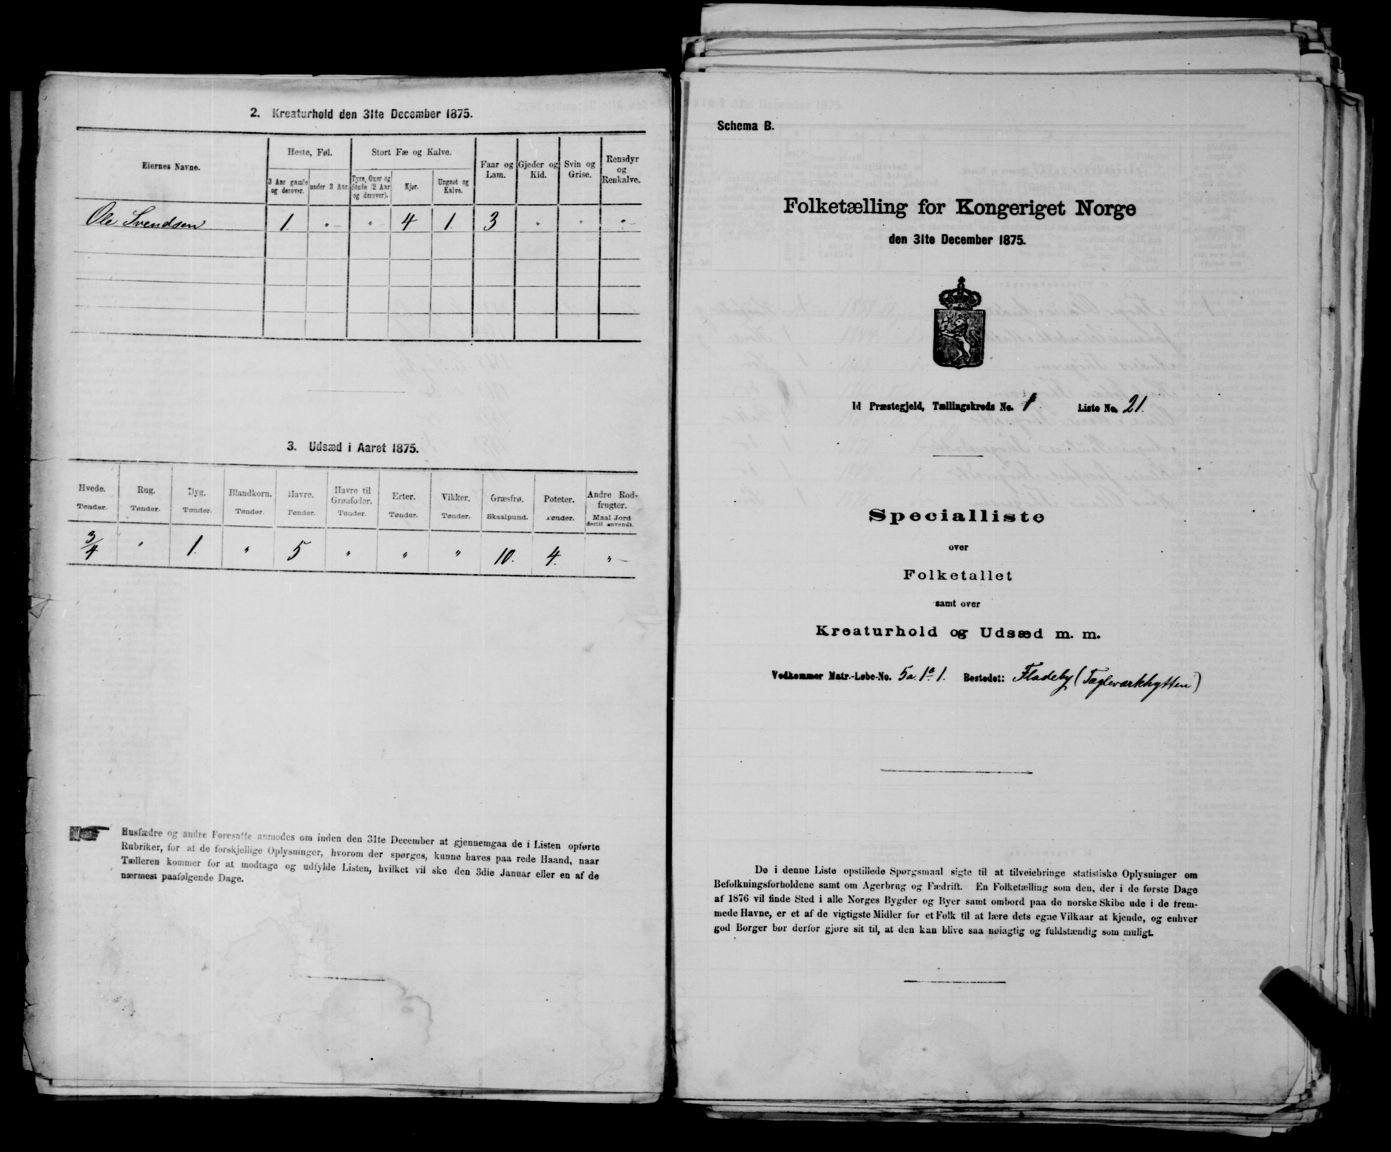 2. Kreaturhold den 31te December 1875.
Eiernes Navne. Heste, Føl. Stort Fæ og Kalve. Faar og Lam. Gjeder og Kid. Svin og Grise. Rensdyr og Renkalve.
3 Aar gamle og derover. under 3 Aar. Tyre, Oxer og Stude (2 Aar og derover). Kjør. Ungnøt og Kalve.
Ole Svendsen 1 " " 4 1 3 " " "
3. Udsæd i Aaret 1875.
Hvede. Rug. Byg. Blandkorn. Havre. Havre til Grønfoder. Erter. Vikker. Græsfrø. Poteter. Andre Rodfrugter.
Tønder. Tønder. Tønder. Tønder. Tønder. Tønder. Tønder. Tønder. Skaalpund. Tønder. Maal Jord dertil anvendt.
3/4 " 1. " 5 " " " 10. 4. "
Husfædre og andre Foresatte anmodes om inden den 31te December at gjennemgaa de i Listen opførte
Rubriker, for at de forskjellige Oplysninger, hvorom der spørges, kunne haves paa rede Haand, naar
Tælleren kommer for at modtage og udfylde Listen, hvilket vil ske den 3die Januar eller en af de
nærmest paafølgende Dage.
Schema B.
Folketælling for Kongeriget Norge
den 31te December 1875.
Id Præstegjeld, Tællingskreds No. 1. Liste No. 21.
Specialliste
over
Folketallet
samt over
Kreaturhold og Udsæd m. m.
Vedkommer Matr.-Løbe-No. 5a. 1a 1. Bostedet: Fladeby (Taglverkhytten)
De i denne Liste opstillede Spørgsmaal sigte til at tilveiebringe statistiske Oplysninger om
Befolkningsforholdene samt om Agerbrug og Fædrift. En Folketælling som den, der i de første Dage
af 1876 vil finde Sted i alle Norges Bygder og Byer samt ombord paa de norske Skibe ude i de frem-
mede Havne, er et af de vigtigste Midler for et Folk til at lære dets egne Vilkaar at kjende, og enhver
god Borger bør derfor gjøre sit til, at den kan blive saa nøiagtig og fuldstændig som muligt.